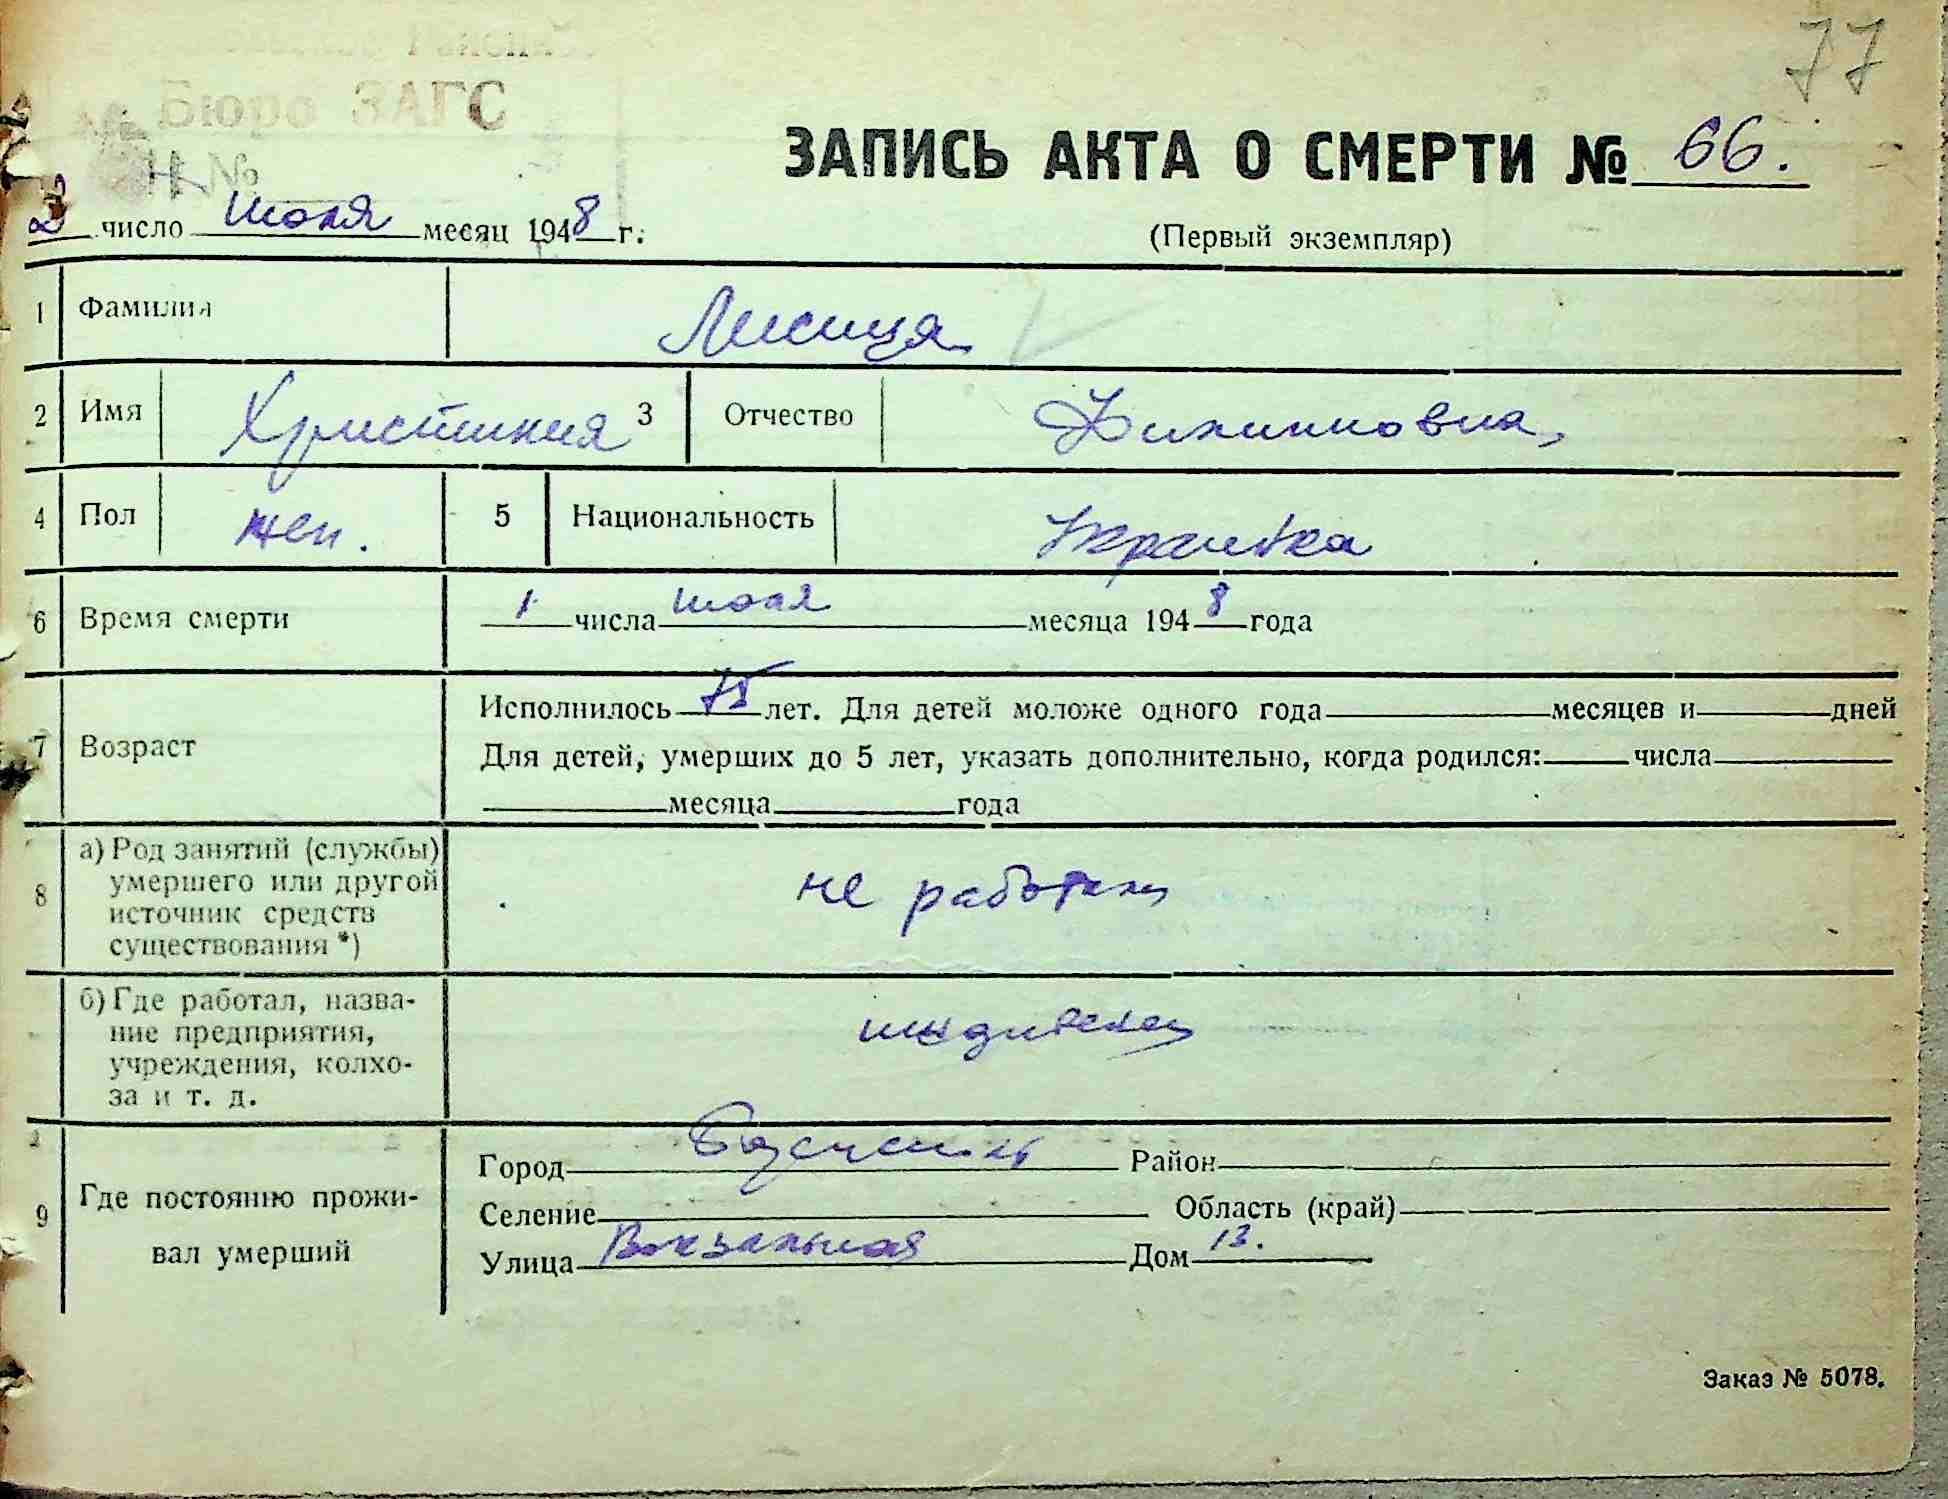 77
Бюро ЗАГС
№
ЗАПИСЬ АКТА О СМЕРТИ № 66.
2 число июля месяц 1948 г.
(Первый экземпляр)
1 Фамилия Лисица
2 Имя Христиния 3 Отчество Филипповна
4 Пол жен. 5 Национальность Украинка
6 Время смерти 1 числа июля месяца 1948 года
7 Возраст Исполнилось 75 лет. Для детей моложе одного года месяцев и дней
Для детей, умерших до 5 лет, указать дополнительно, когда родился: числа
месяца года
8 а) Род занятий (службы)
умершего или другой
источник средств
существования *)
не работал
б) Где работал, назва-
ние предприятия,
учреждения, колхо-
за и т. д.
иждивенец
9 Где постоянно прожи-
вал умерший
Город Район
Селение Область (край)
Улица Вокзальная Дом 13.
Заказ № 5078.